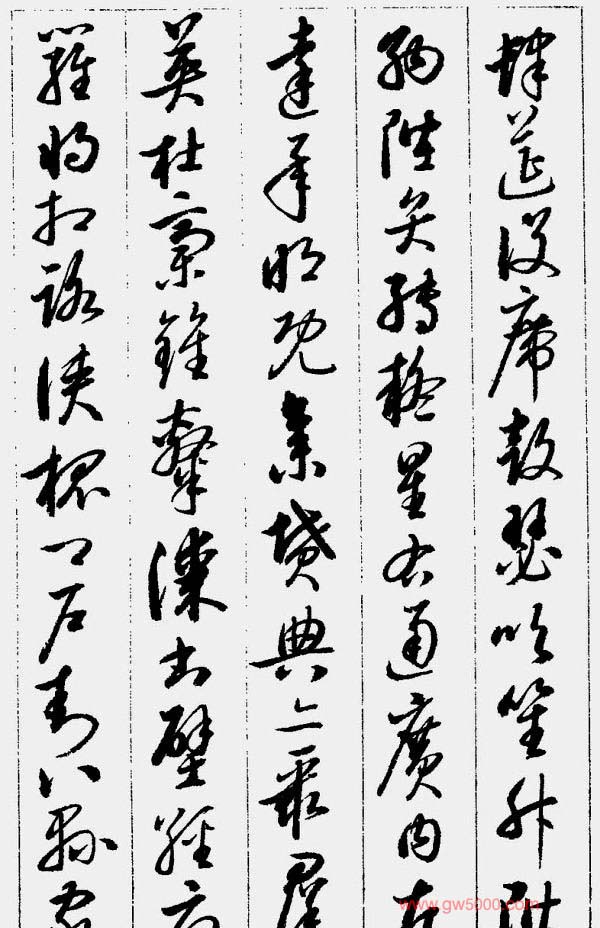 肆筵設席鼓瑟吹笙升階
納陛弁轉疑星右通廣內左
達承明既集墳典亦聚群
英杜稾鍾隸漆書壁經府
羅將相路俠槐卿戶封八縣家
www.gw5000.com